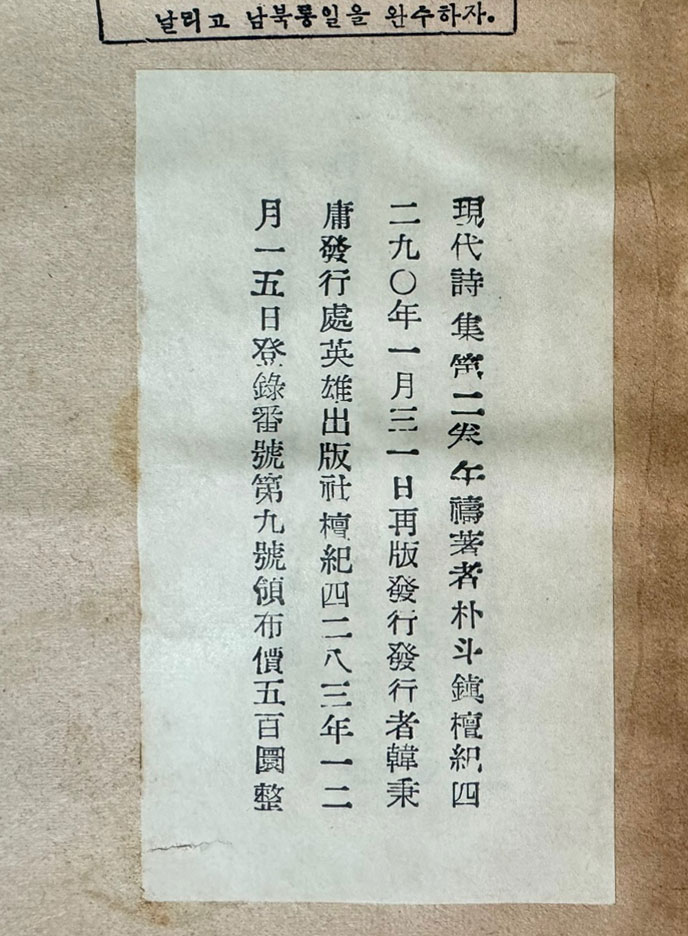 날리고 남북통일을 완수하자.
現代詩集第二矣午禱著者朴斗鎭檀紀四
二九〇年一月三一日再版發行發行者韓秉
庸發行處英雄出版社檀紀四二八三年一二
月一五日登錄番號第九號領布價五百圜整